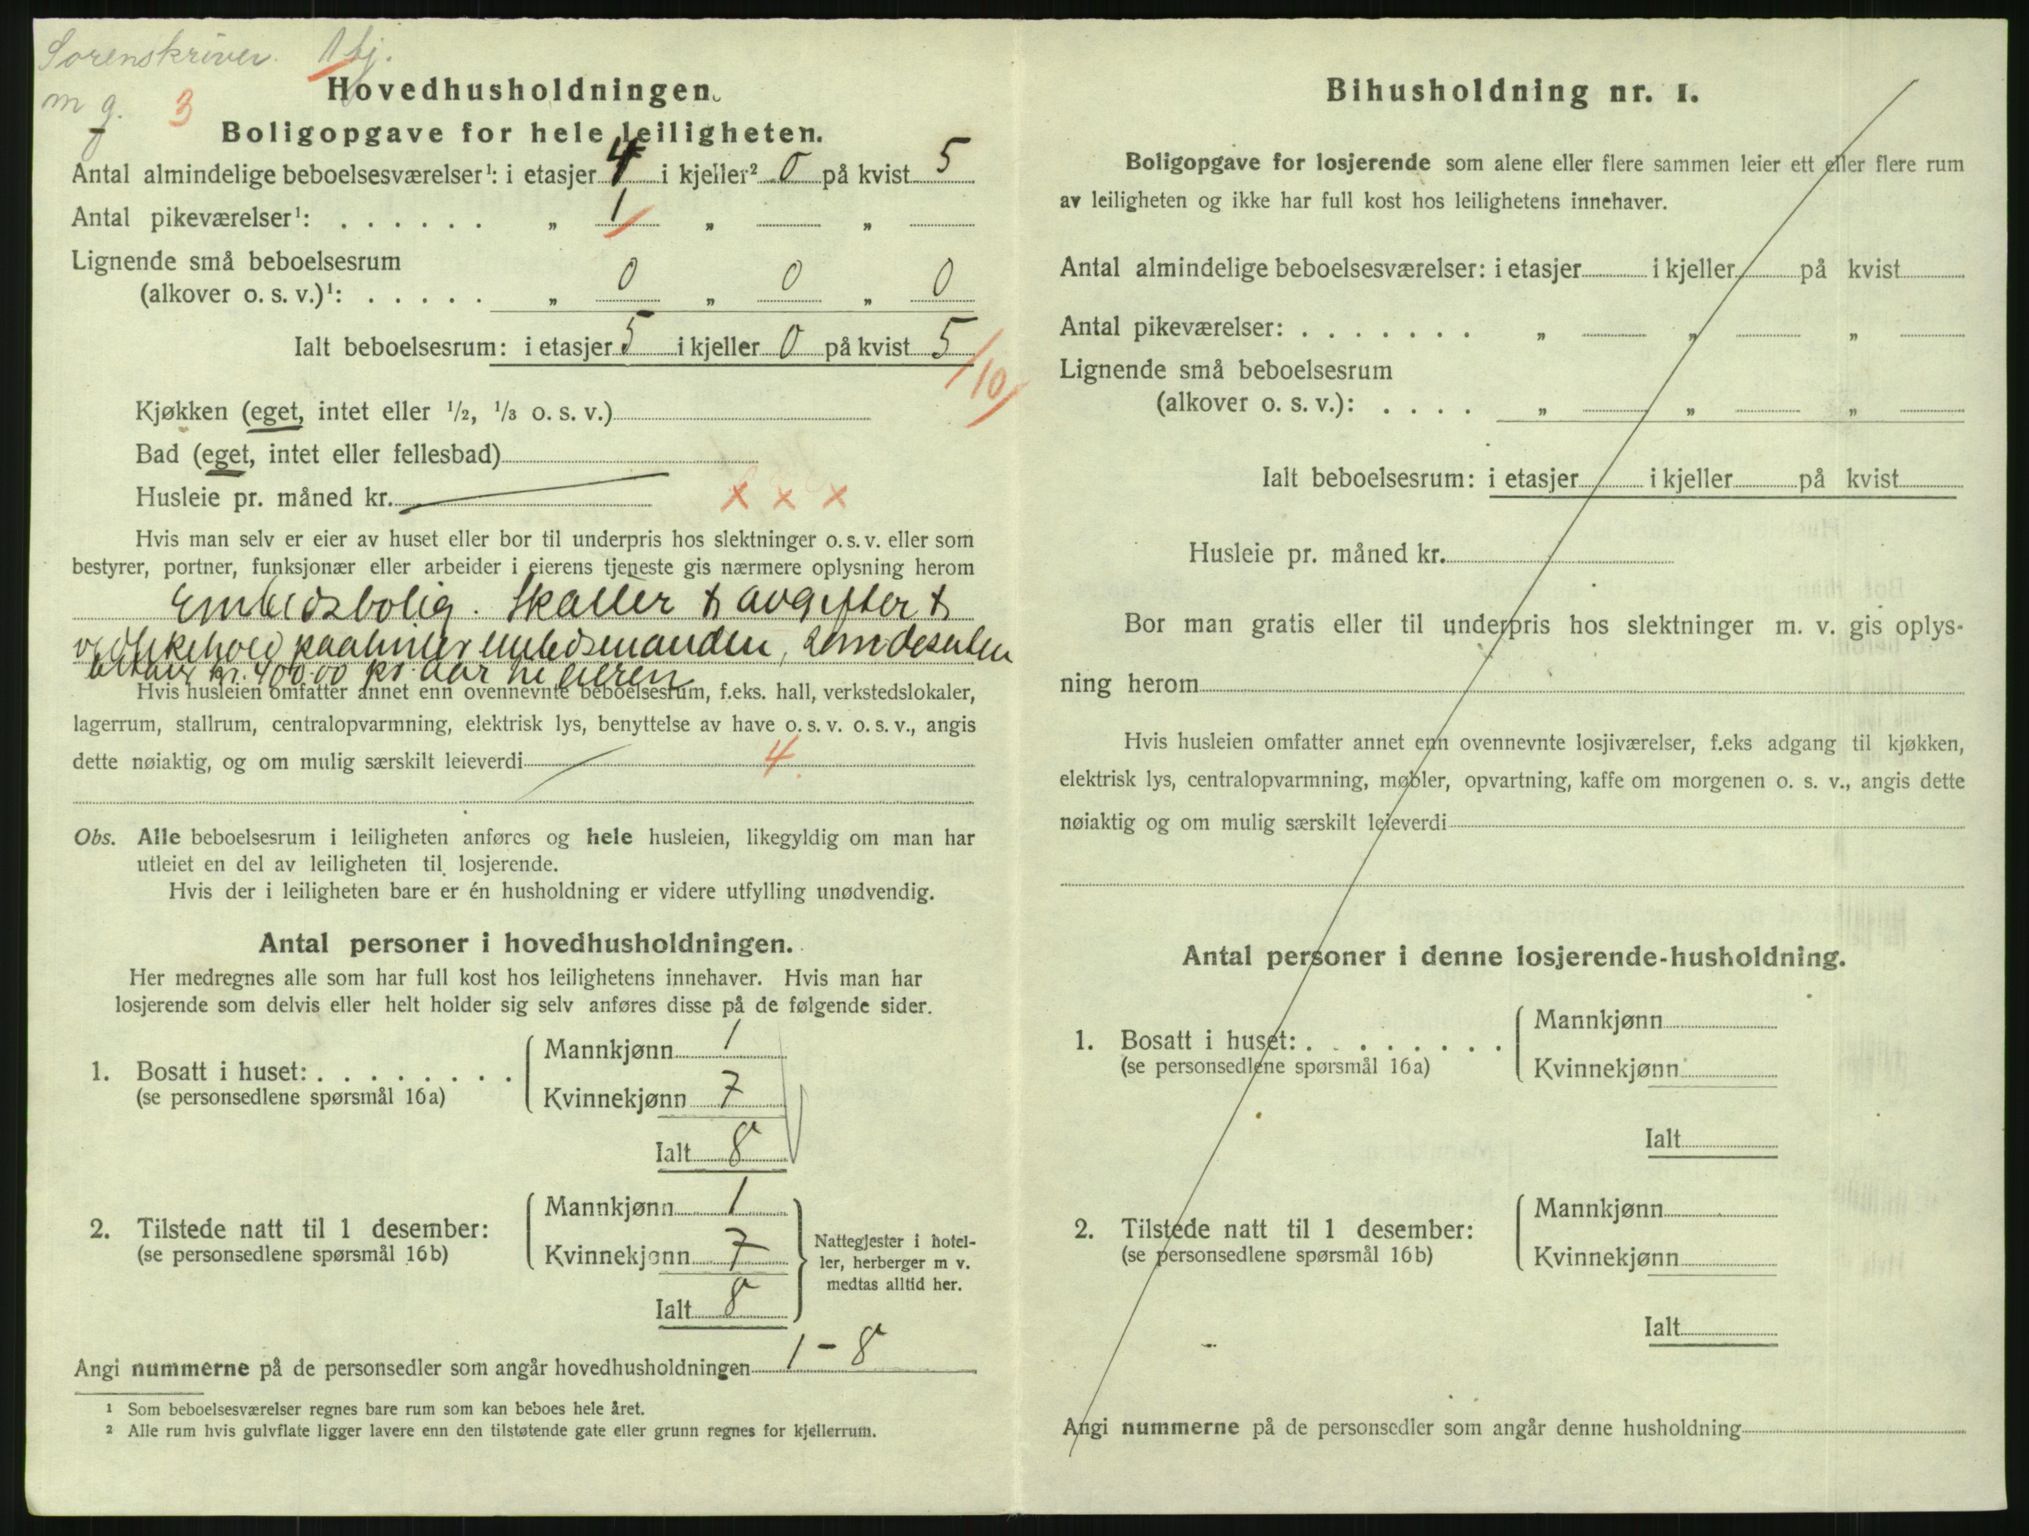 Sorenskriver. 1 bj.
m g. 3
Hovedhusholdningen.
Boligopgave for hele leiligheten.
Antal almindelige beboelsesværelser¹: i etasjer 4 i kjeller² 0 på kvist 5
Antal pikeværelser¹: . . . . . . „ 1 „ „
Lignende små beboelsesrum
(alkover o. s. v.)¹: . . . . . „ 0 „ 0 „ 0
Ialt beboelsesrum: i etasjer 5 i kjeller 0 på kvist 5
/10/
Kjøkken (eget, intet eller 1/2, 1/3 o. s. v.)
Bad (eget, intet eller fellesbad)
Husleie pr. måned kr. x x x
Hvis man selv er eier av huset eller bor til underpris hos slektninger o. s. v. eller som
bestyrer, portner, funksjonær eller arbeider i eierens tjeneste gis nærmere oplysning herom
Embedsbolig. Skatter & avgifter &
vedlikehold paahviler embedsmanden, som desuten
kr. 400.00 pr. aar til eieren
Hvis husleien omfatter annet enn ovennevnte beboelsesrum, f.eks. hall, verkstedslokaler,
lagerrum, stallrum, centralopvarmning, elektrisk lys, benyttelse av have o. s. v. o. s. v., angis
dette nøiaktig, og om mulig særskilt leieverdi 4
Obs. Alle beboelsesrum i leiligheten anføres og hele husleien, likegyldig om man har
utleiet en del av leiligheten til losjerende.
Hvis der i leiligheten bare er én husholdning er videre utfylling unødvendig.
Antal personer i hovedhusholdningen.
Her medregnes alle som har full kost hos leilighetens innehaver. Hvis man har
losjerende som delvis eller helt holder sig selv anføres disse på de følgende sider.
1. Bosatt i huset: . . . . . . . .
(se personsedlene spørsmål 16a)
Mannkjønn 1
Kvinnekjønn 7
Ialt 8
2. Tilstede natt til 1 desember:
(se personsedlene spørsmål 16b)
Mannkjønn 1
Kvinnekjønn 7
Ialt 8
Nattegjester i hotel-
ler, herberger m v.
medtas alltid her.
Angi nummerne på de personsedler som angår hovedhusholdningen 1 - 8
¹ Som beboelsesværelser regnes bare rum som kan beboes hele året.
² Alle rum hvis gulvflate ligger lavere enn den tilstøtende gate eller grunn regnes for kjellerrum.
Bihusholdning nr. 1.
Boligopgave for losjerende som alene eller flere sammen leier ett eller flere rum
av leiligheten og ikke har full kost hos leilighetens innehaver.
Antal almindelige beboelsesværelser: i etasjer i kjeller på kvist
Antal pikeværelser: . . . . . . . „ „ „
Lignende små beboelsesrum
(alkover o. s. v.): . . . . „ „ „
Ialt beboelsesrum: i etasjer i kjeller på kvist
Husleie pr. måned kr.
Bor man gratis eller til underpris hos slektninger m. v. gis oplys-
ning herom
Hvis husleien omfatter annet enn ovennevnte losjiværelser, f.eks adgang til kjøkken,
elektrisk lys, centralopvarmning, møbler, opvartning, kaffe om morgenen o. s. v., angis dette
nøiaktig og om mulig særskilt leieverdi
Antal personer i denne losjerende-husholdning.
1. Bosatt i huset: . . . . . . . .
(se personsedlene spørsmål 16a)
Mannkjønn
Kvinnekjønn
Ialt
2. Tilstede natt til 1 desember:
(se personsedlene spørsmål 16b)
Mannkjønn
Kvinnekjønn
Ialt
Angi nummerne på de personsedler som angår denne husholdning